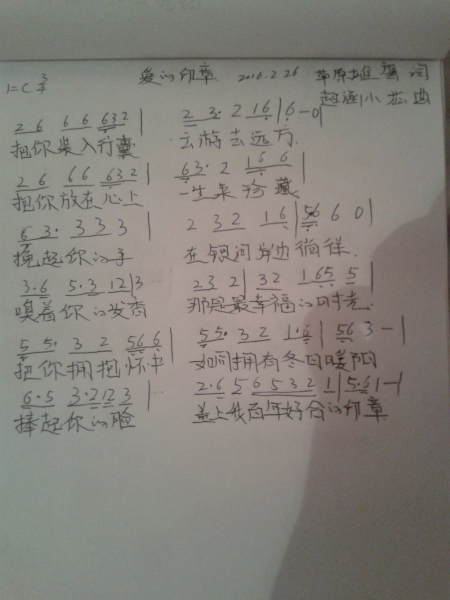 1=C 3/4 爱的印章 2016.2.26 草原雄鹰 词
赵连小龙曲
2 6 6 6 6 3 2 | 2 3· 2 1 6 | 6 -0 |
把你装入行囊 去游去远方.
2 6 6 6 6 3 2 | 6 3· 2 1 6 6 |
把你放在心上 一生来珍藏
6 3· 3 3 3 | 2 3 2 1 6 | 5 6 6 0 |
挽起你的手 在银河岸边徜徉.
3·6 5·3 1 2 | 3 2 3 2 | 3 2 1 6 5 5 |
嗅着你的发香 那是最幸福的时光.
5 5· 3 2 5 6 6 | 5 5· 3 2 1·6 | 5 6 3 - |
把你拥抱怀中 如同拥有冬日暖阳
6·5 3·2 1 2 3 | 2·6 5 6 5 3 2 1 | 5·6 1 - |
捧起你的脸 盖上我百年好合的印章